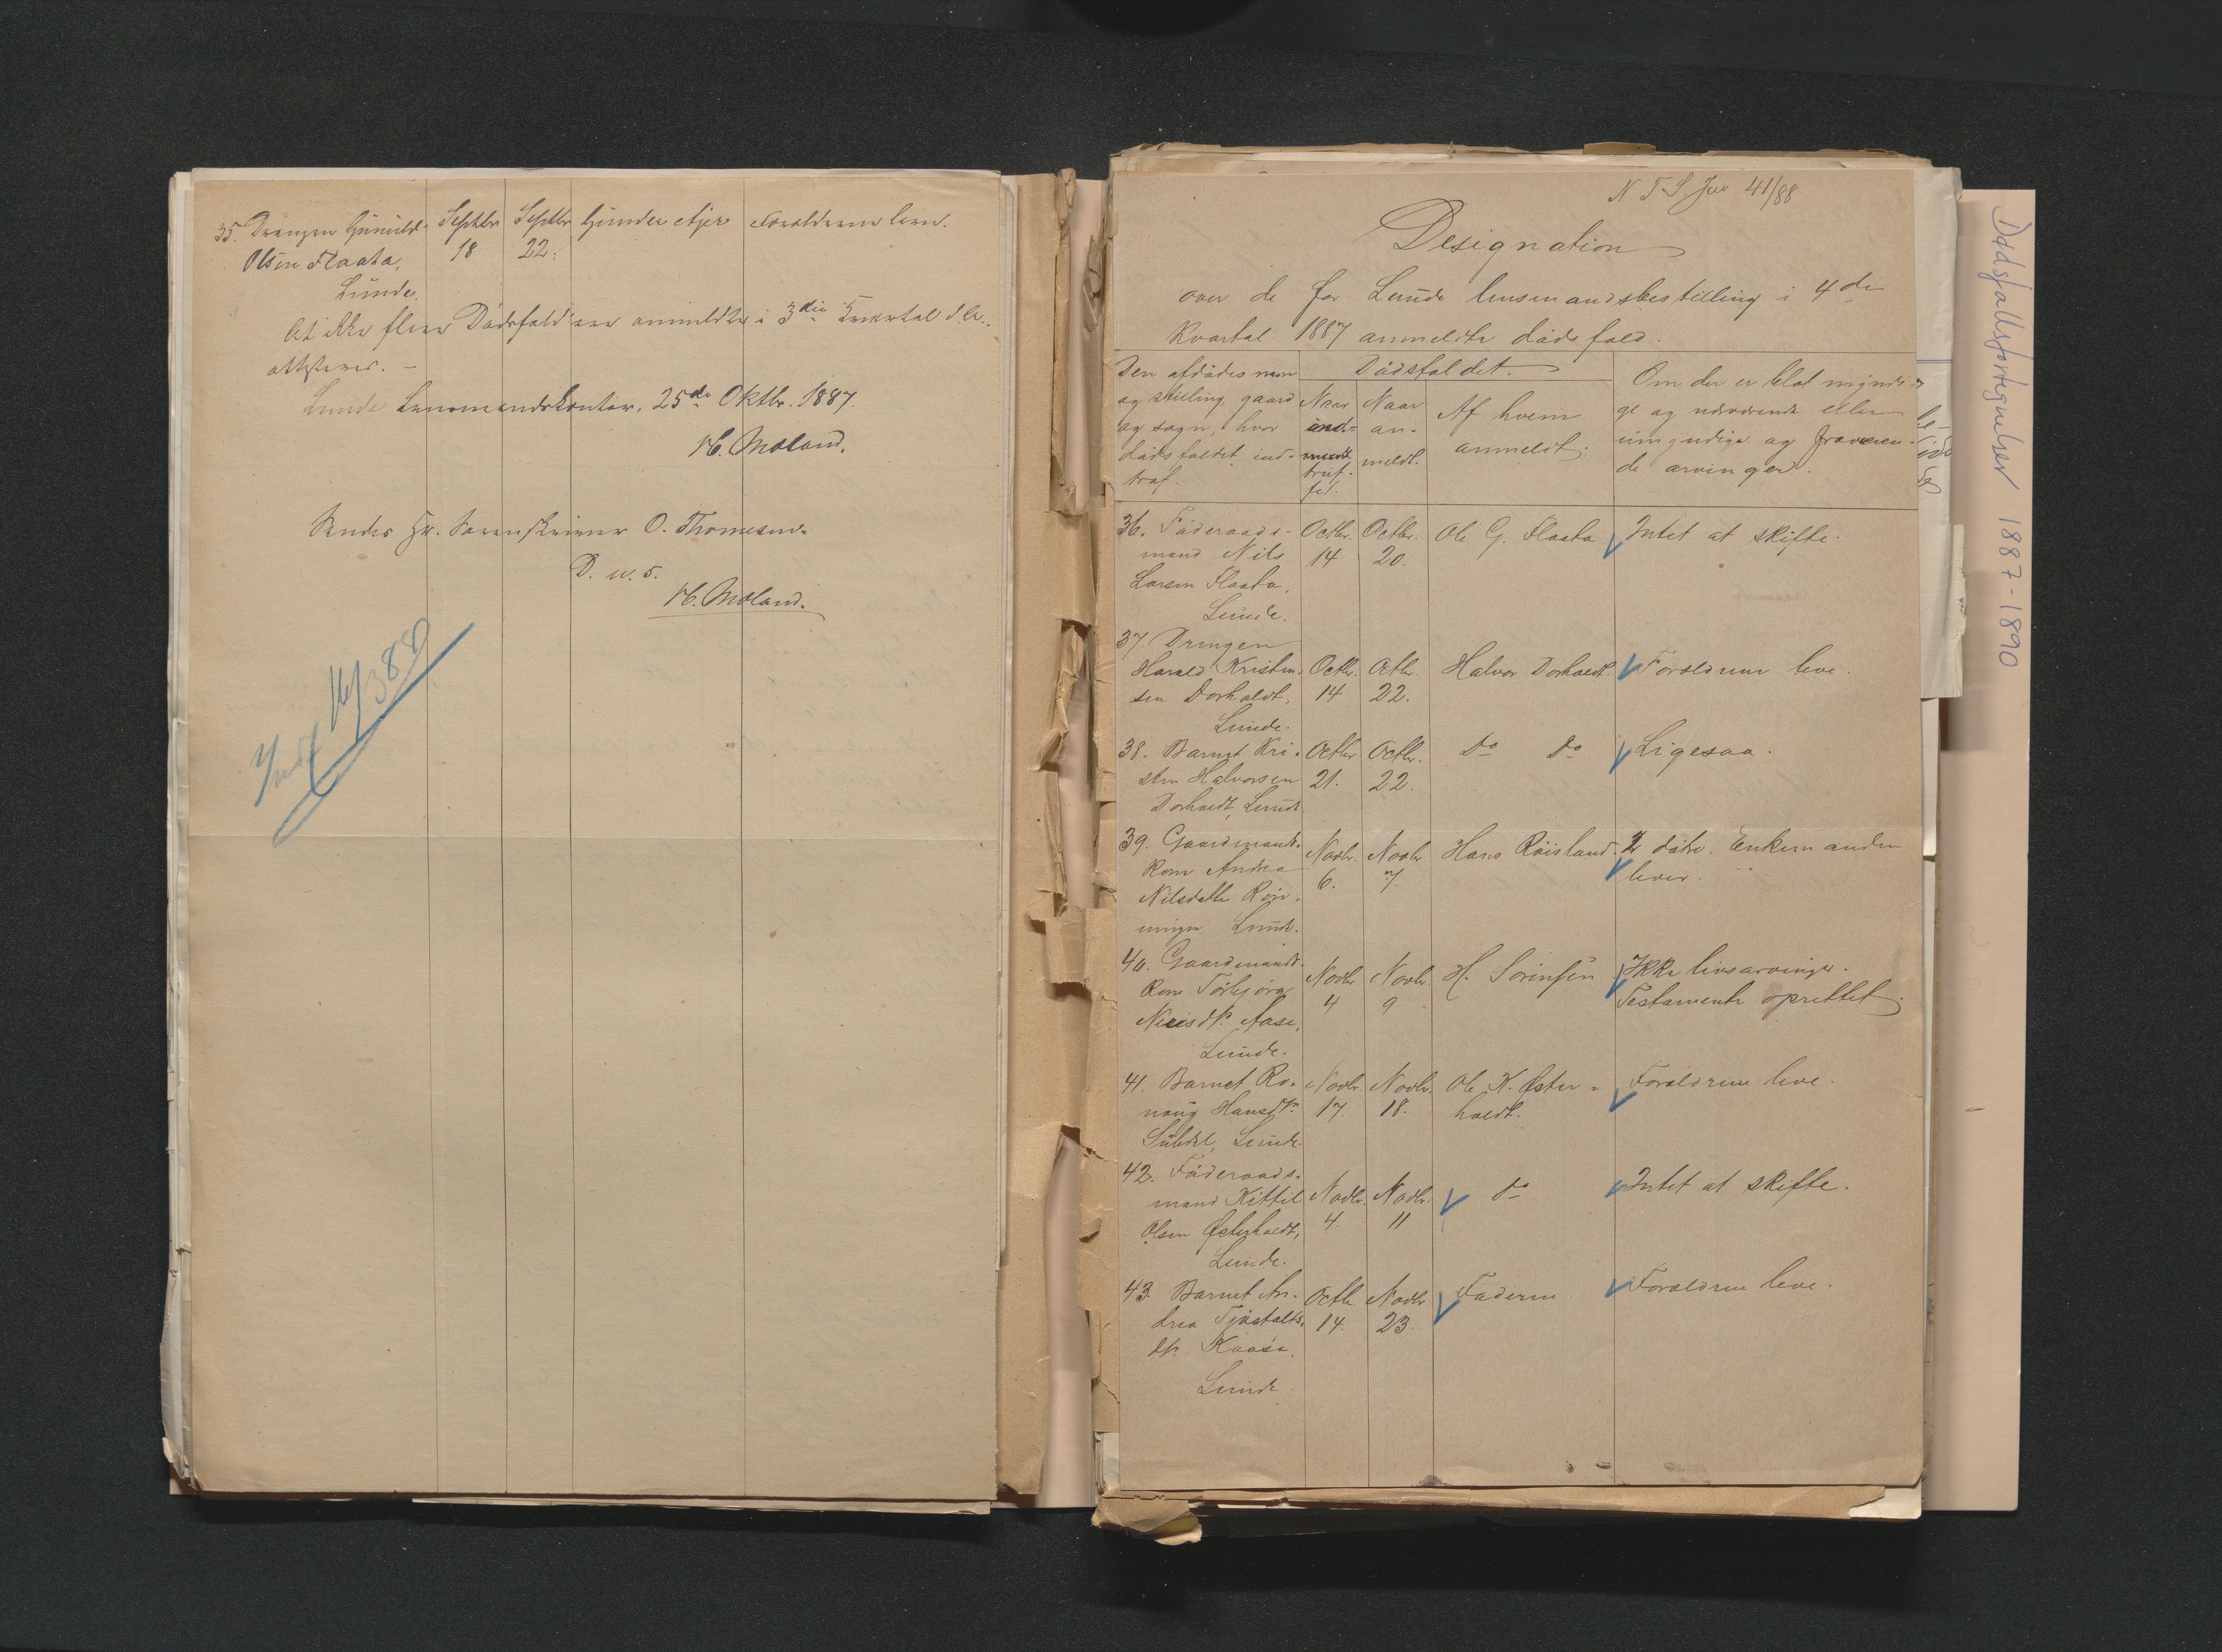 35. Drengen Gunuld
Olsen Flaata,
Lunde.
Septbr
18
Septbr
22.
Gunder Ejer
Forældrene leve.
At ikke flere Dødsfald ere anmeldte i 3die Kvartal d. A.
attesteres. –
Lunde Lensmandskontor, 25de Oktbr. 1887.
H. Moland.
Sendes Hr. Sorenskriver O. Thomesen.
D. u. s.
H. Moland.
N T S Jou 41/88
Designation
over de for Lunde lensmandsbestilling i 4de
Kvartal 1887 anmeldte dödsfald.
Den afdödes navn
og stilling, gaard
og sogn, hvor
dödsfaldet ind-
traf.
Dödsfaldet.
Naar
ind-
truf-
fet.
Naar
an-
meldt.
Af hvem
anmeldt.
Om der er blot myndi-
ge og nærværende eller
umyndige og fraværen-
de arvinger.
36. Föderaads-
mand Nils
Larsen Flaata,
Lunde.
Octbr.
14
Octbr.
20.
Ole G. Flaata
Intet at skifte.
37. Drengen
Harald Kristen-
sen Dorholdt,
Lunde.
Octbr.
14
Octbr.
22.
Halvor Dorholdt.
Forældrene leve.
38. Barnet Kri-
sten Halvorsen
Dorholdt, Lunde.
Octbr.
21.
Octbr.
22.
Do Do
Ligesaa.
39. Gaardmands-
kone Andrea
Nilsdatter Røi-
ningen Lunde.
Novbr.
6.
Novbr.
7.
Hans Röisland.
2 dötre. Enkemanden
lever.
40. Gaardmands-
kone Torbjørg
Neiisdtr. Aase,
Lunde.
Novbr
4
Novbr.
9
H. Sörensen
Ikke livsarvinger.
Testamente oprettet.
41. Barnet Ro-
naug Hansdtr.
Lunde.
Novbr.
17.
Novbr.
18.
Ole K. Østen-
holdt.
Forældrene leve.
42. Föderaads-
mand Kittil
Olsen Østerholdt,
Lunde.
Novbr.
4.
Novbr.
11
do
Intet at skifte.
43. Barnet An-
drea Tjøstolfs-
dtr. Kaasa,
Lunde.
Octbr.
14.
Novbr
23.
Faderen
Forældrene leve.
Dødsfallsfortegnelser 1887-1890